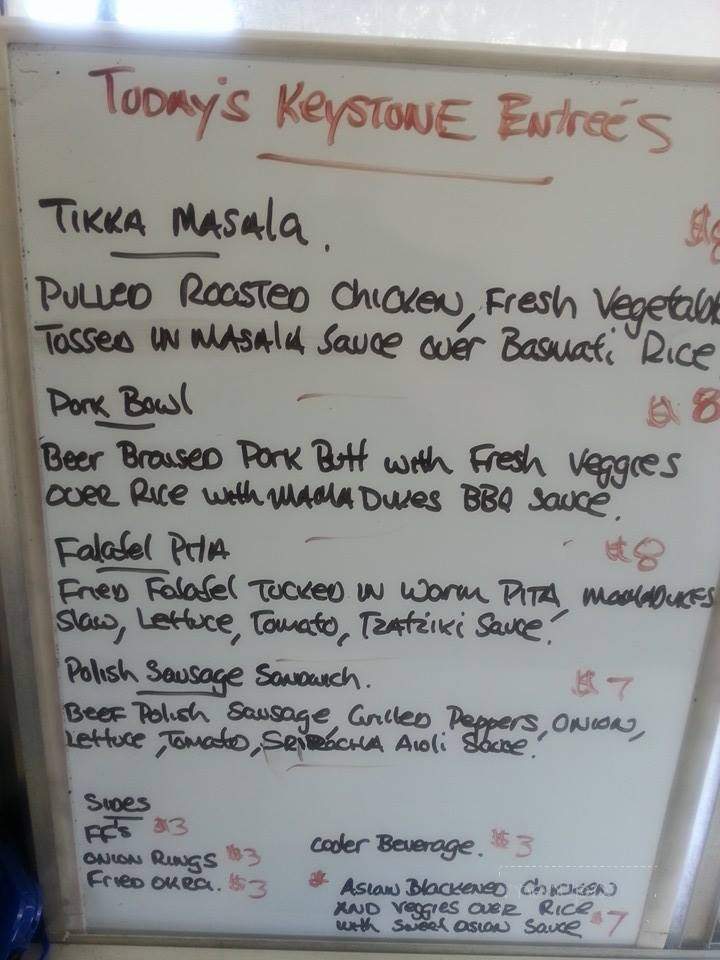 Today's Keystone Entreé's
Tikka Masala.
Pulled Roasted Chicken, Fresh Vegetabl
Tossed in Masala Sauce over Basmati Rice
Pork Bowl $8
Beer Braised Pork Butt with Fresh Veggies
over Rice with MAMA Dukes BBQ Sauce.
Falafel Pita $8
Fried Falafel Tucked in Warm Pita, MamaDukes
Slaw, Lettuce, Tomato, Tzatziki Sauce.
Polish Sausage Sandwich. $7
Beef Polish Sausage, Grilled Peppers, Onion,
Lettuce, Tomato, Sriracha Aioli Sauce.
Sides
FF's $3
Onion Rings $3
Fried Okra. $3
Cooler Beverage. $3
* Asian Blackened Chicken
and Veggies over Rice
with Sweet Asian Sauce $7